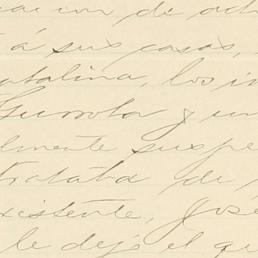 de
á sus casas,
Catalina, los
Gurrola y un
lmente suspe
trataba de
xistente, José
le dejó el qu